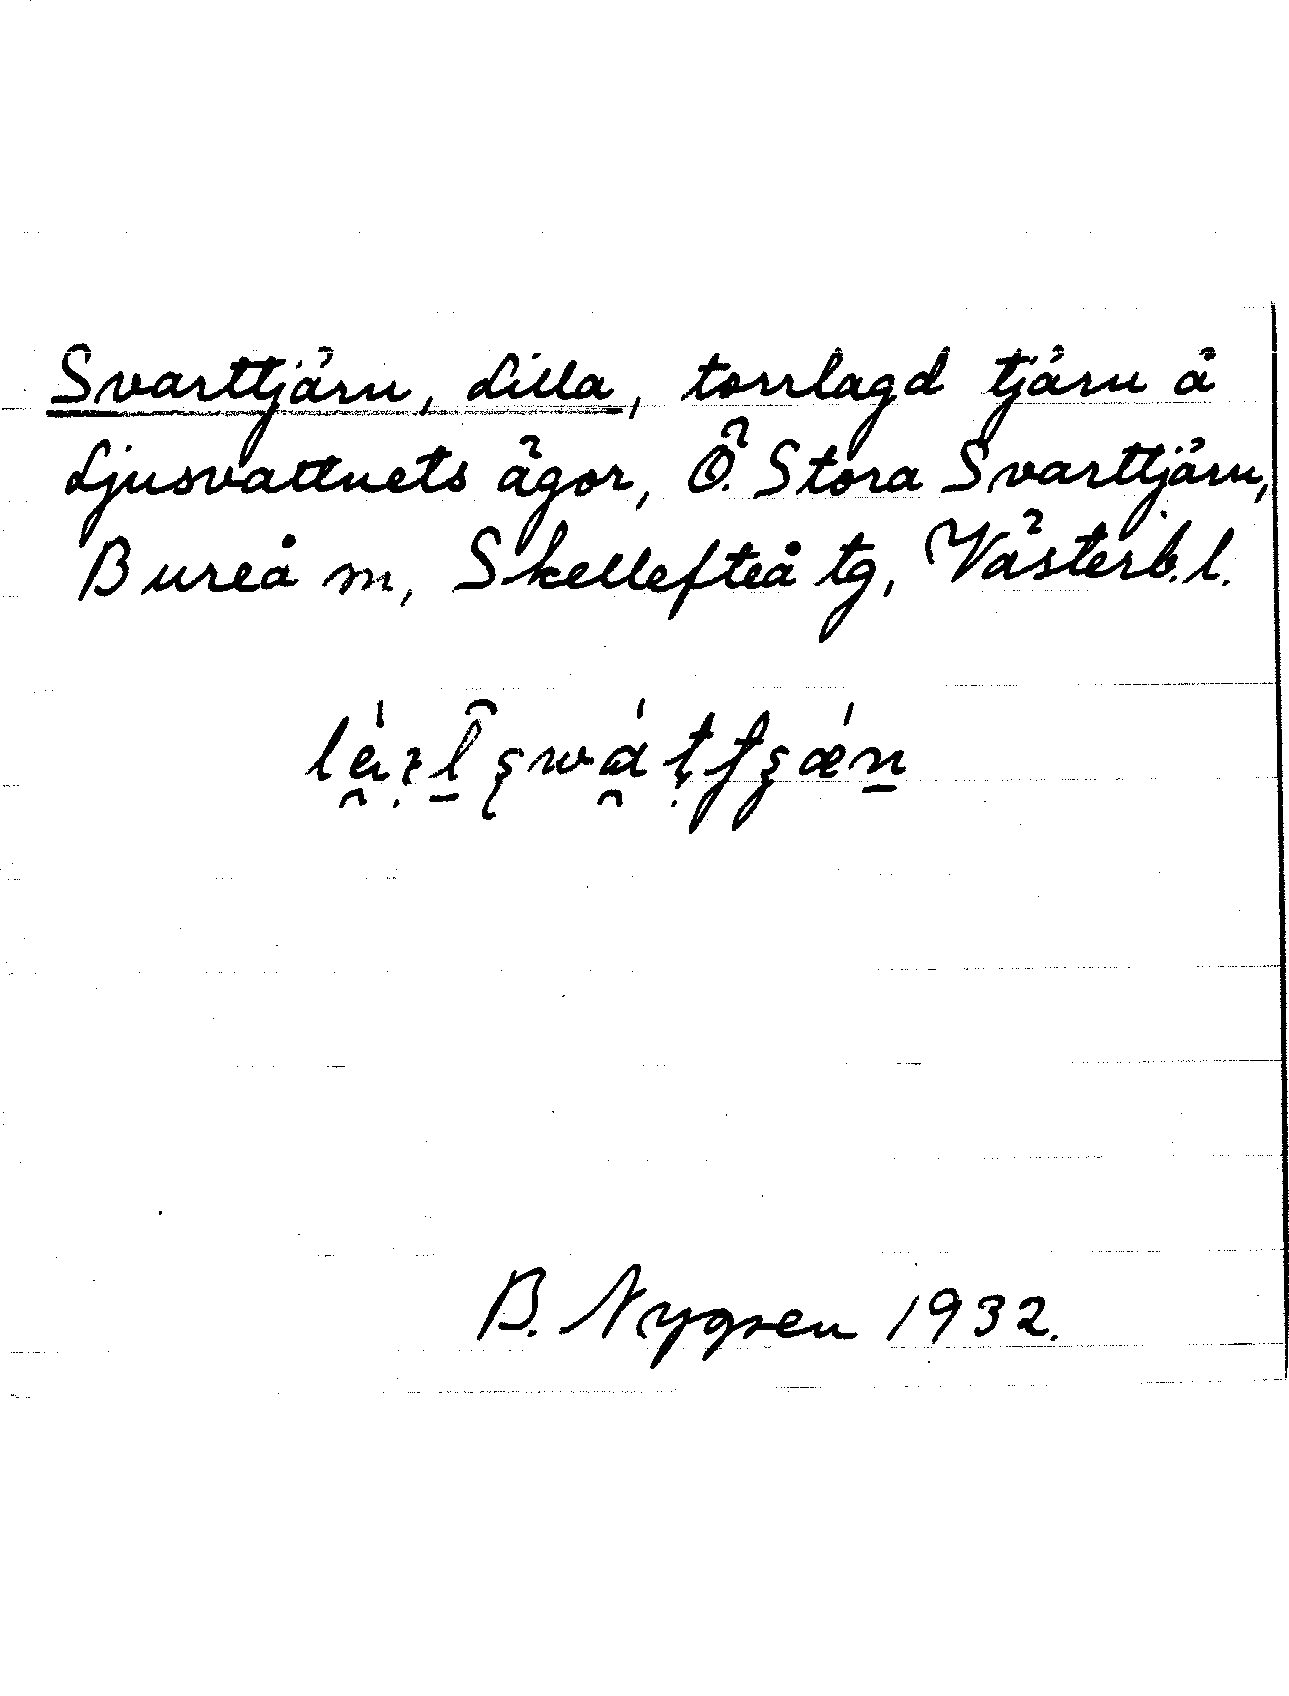 Svarttjärn, Lilla, torrlagd tjärn å
Ljusvattnets ägor, Ö. Stora Svarttjärn,
Bureå m, Skellefteå tg, Västerb. l.
B. Nygren 1932.